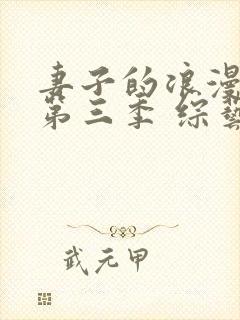 妻子的浪漫
第三季 综藝
武元甲